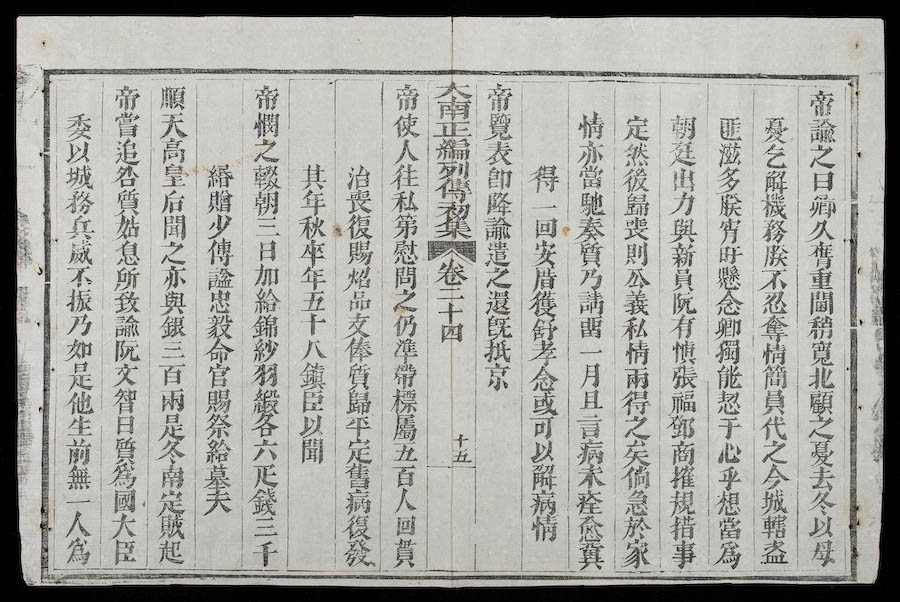 帝諭之曰卿久奮重閫稍寬北顧之憂去冬以母
憂乞解機務朕不忍奪情簡員代之今城轄盗
匪滋多朕宵旰懸念卿獨能恝于心乎想當爲
朝廷出力與新員阮有慎張福鄧商搉規措事
定然後歸喪則公義私情兩得之矣倘急於家
情亦當馳奏質乃請畱一月且言病未痊愈冀
得一回安厝獲舒孝念或可以解病情
帝覽表卽降諭遣之還旣抵京
大南正編列傳初集 卷二十四 十五
帝使人往私第慰問之仍準帶標屬五百人回貫
治喪復賜炤品支俸質歸平定舊病復發
其年秋卒年五十八鎮臣以聞
帝憫之輟朝三日加給錦紗羽緞各六疋錢三千
緡贈少傅諡忠毅命官賜祭給墓夫
順天高皇后聞之亦與銀三百兩是冬南定賊起
帝嘗追咎質姑息所致諭阮文智曰質爲國大臣
委以城務兵威不振乃如是他生前無一人爲